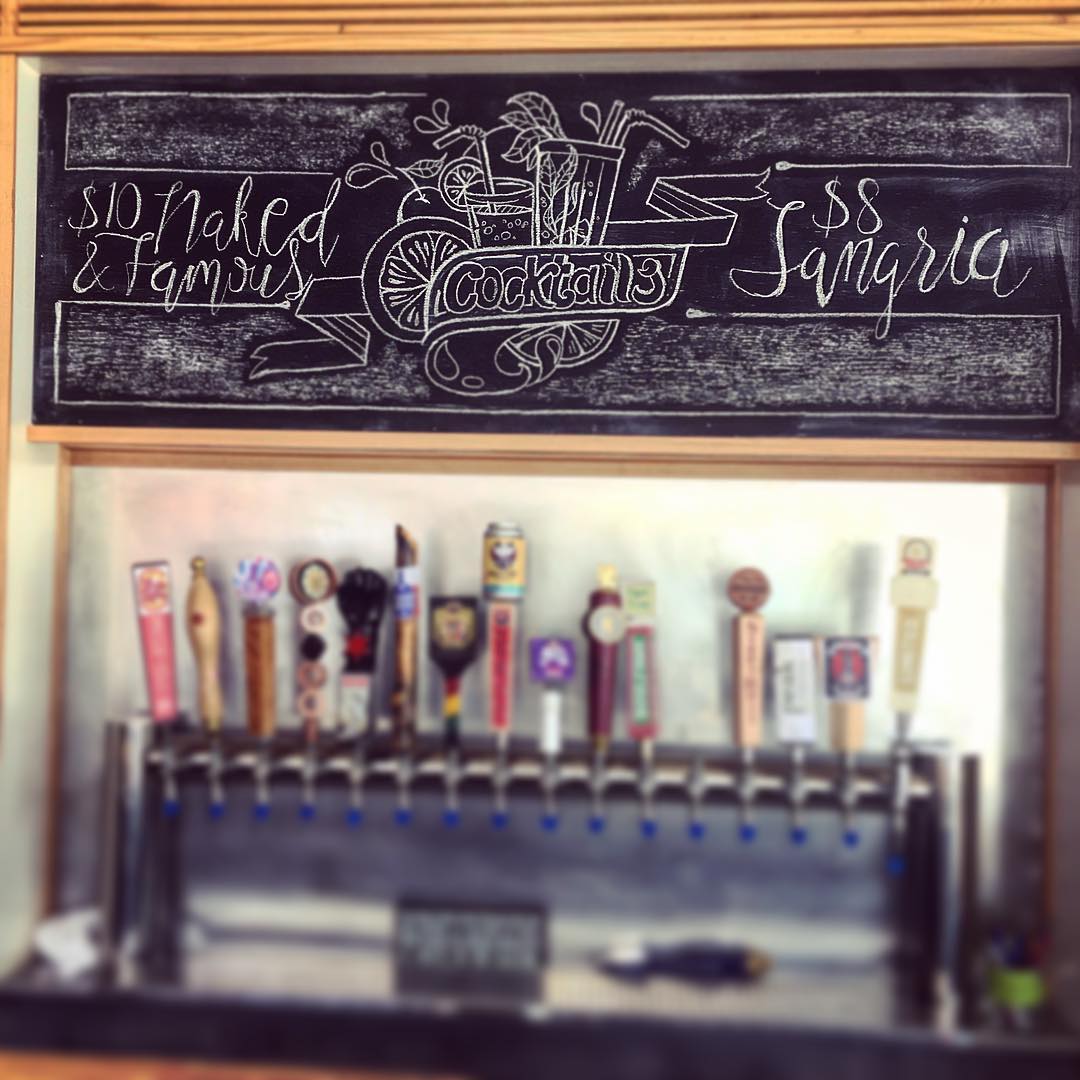 $10 Naked
& Famous
cocktails
$8
Sangria